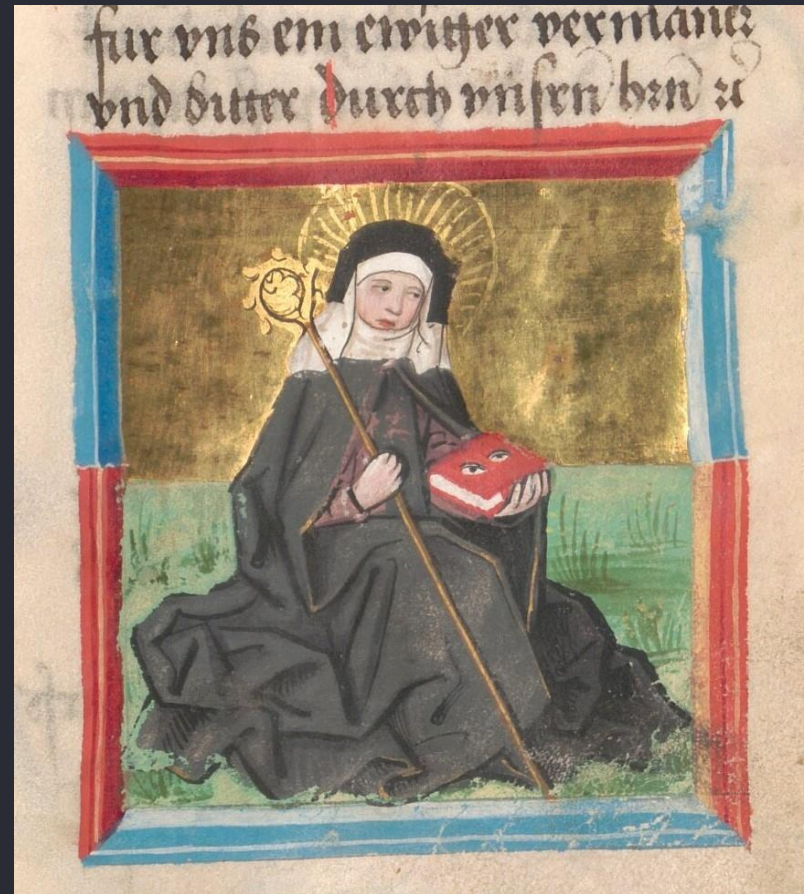 fur vns ein ewiger vermaner
vnd bitter durch vnsen hrn